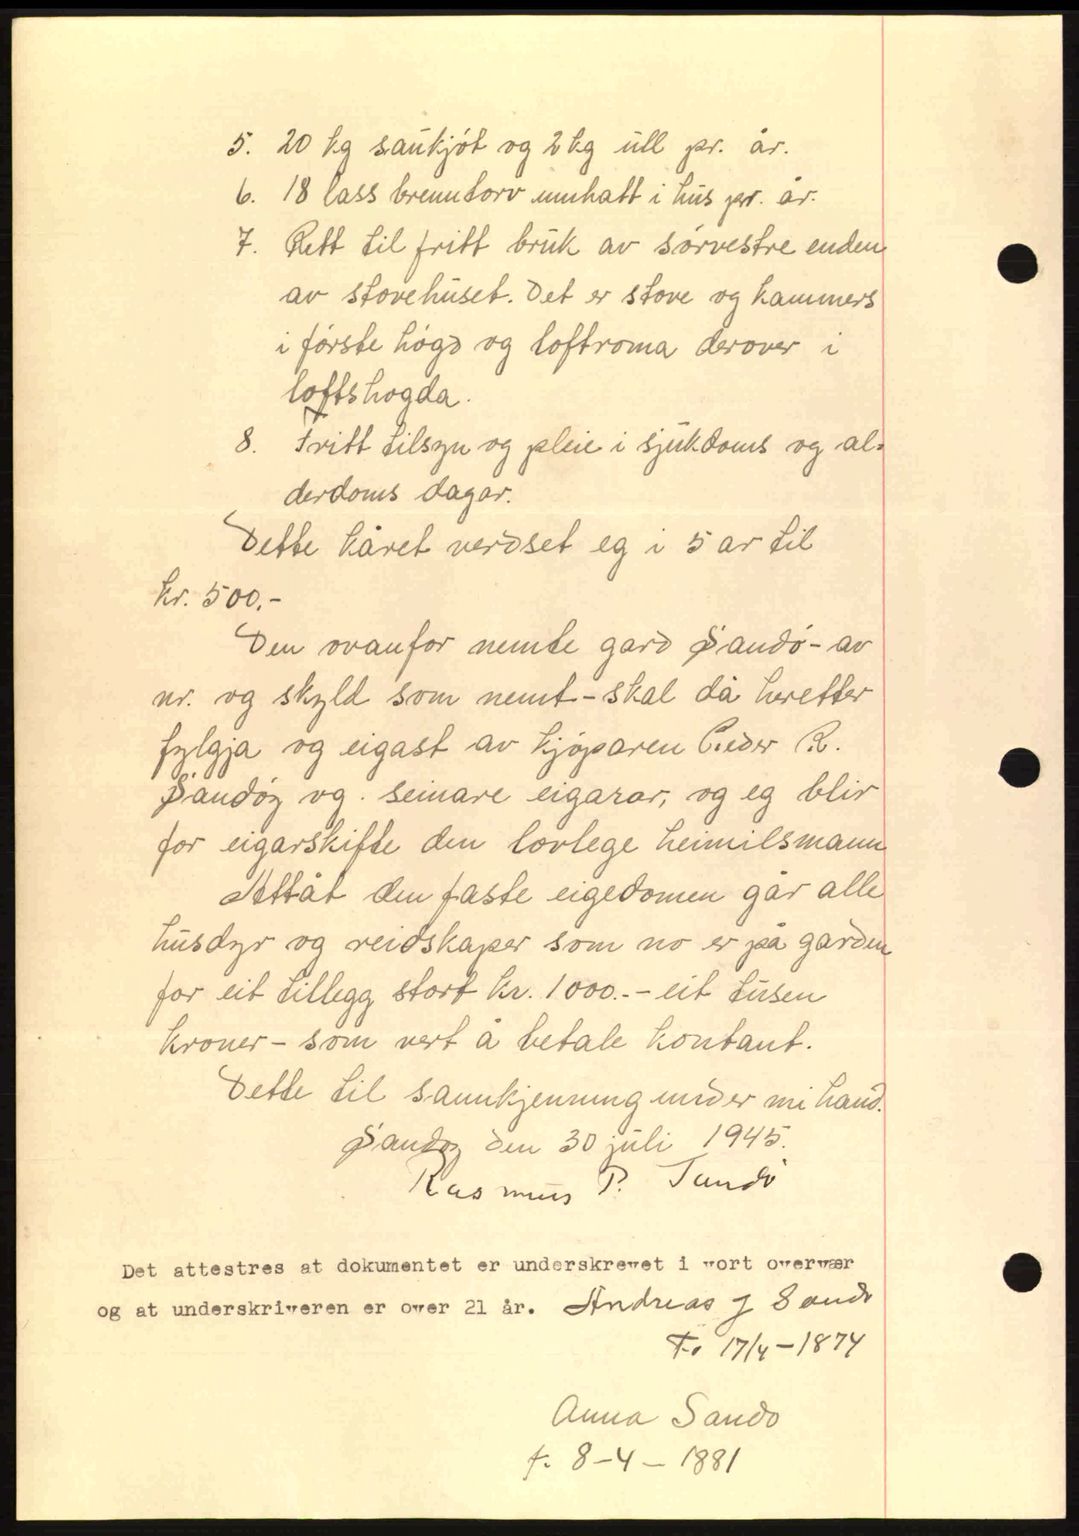 5. 20 kg saukjót og 2 kg ull pr. år.
6. 18 lass brenntorv innhatt i hus pr. år.
7. Rett til fritt bruk av sørvestre enden
av stovehuset. Det er stove og kammers
i første høgd og loftroma derover i
loftshogda.
8. Fritt tilsyn og pleie i sjukdoms og al-
derdoms dagar.
Dette kåret verdset eg i 5 ar til
kr. 500.-
Den ovanfor nemte gard Sandó - av
nr. og skyld som nemt - skal då heretter
fylgja og eigast av kjøparen Peder R.
Sandøy og seinare eigarar, og eg blir
for eigarskifte den lovlege heimilsmann
Attåt den faste eigedomen går alle
husdyr og reidskaper som no er på garden
for eit tillegg stort kr. 1000.- - eit tusen
kroner - som vert å betale kontant.
Dette til sannkjenning under mi hand.
Sandøy den 30 juli 1945.
Rasmus P. Sandó
Det attestres at dokumentet er underskrevet i vort overvær
og at underskriveren er over 21 år. Andreas J Sando
F. 17/4 - 1874
Anna Sando
f. 8-4-1881